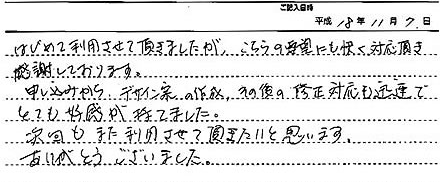 ご記入日時
平成 18年 11月 7日
はじめて利用させて頂きましたが、こちらの要望にも快く対応頂き
感謝しております。
申し込みから デザイン案の作成、その後の修正対応も迅速で
とても好感が持てました。
次回も また利用させて頂きたいと思います。
ありがとうございました。